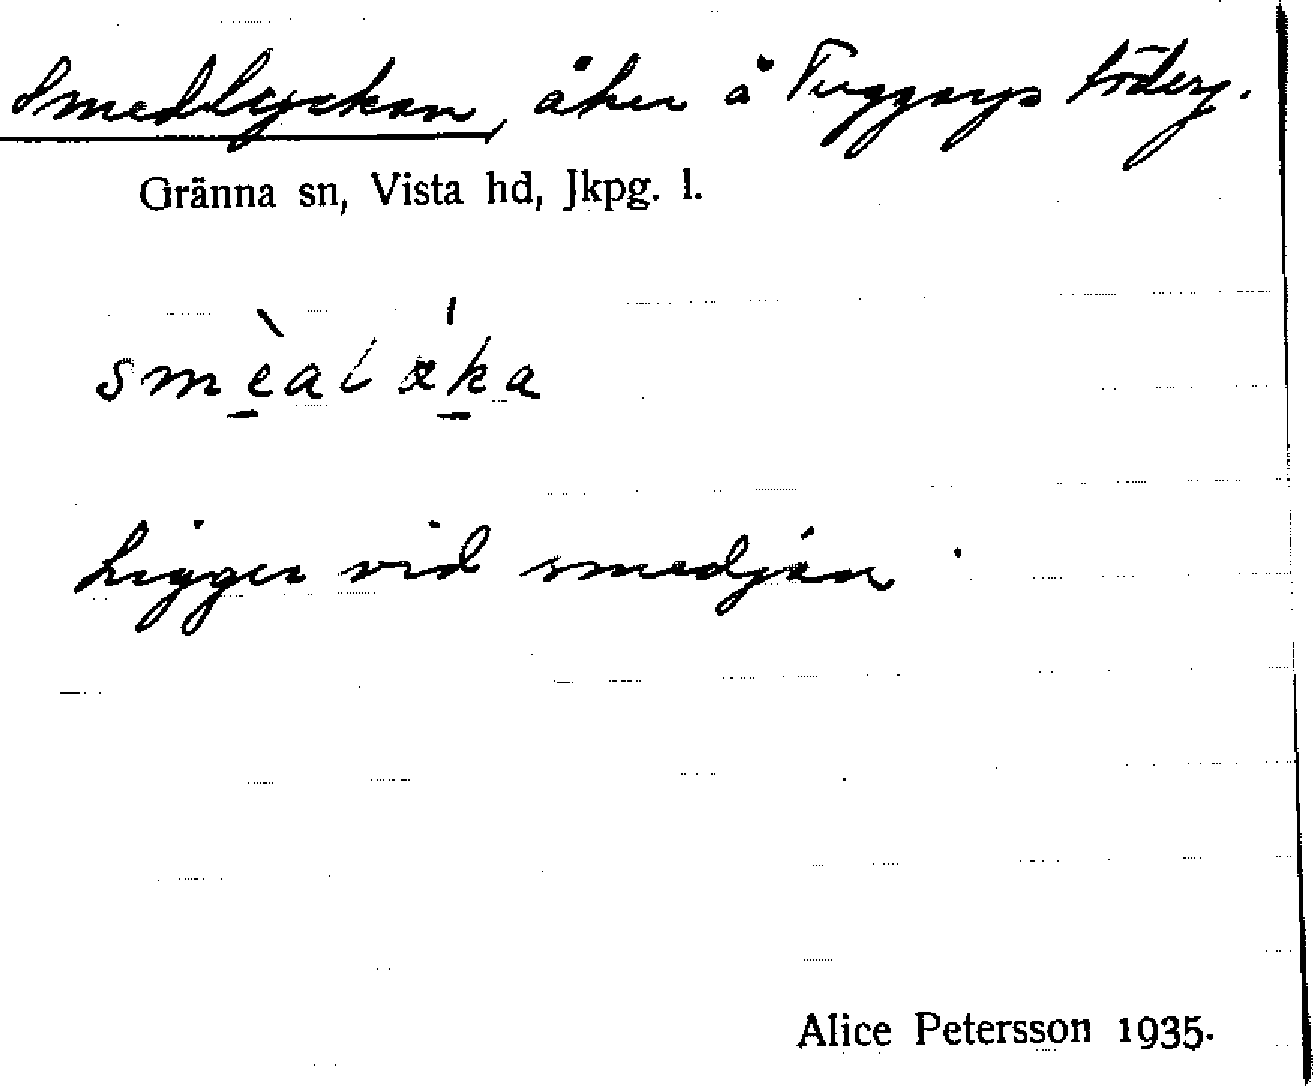 Smedlyckan, åker å Tuggarps Söderg.
Gränna sn, Vista hd, Jkpg. l.
smèalæ̍ka
Ligger vid smedjan.
Alice Petersson 1935.